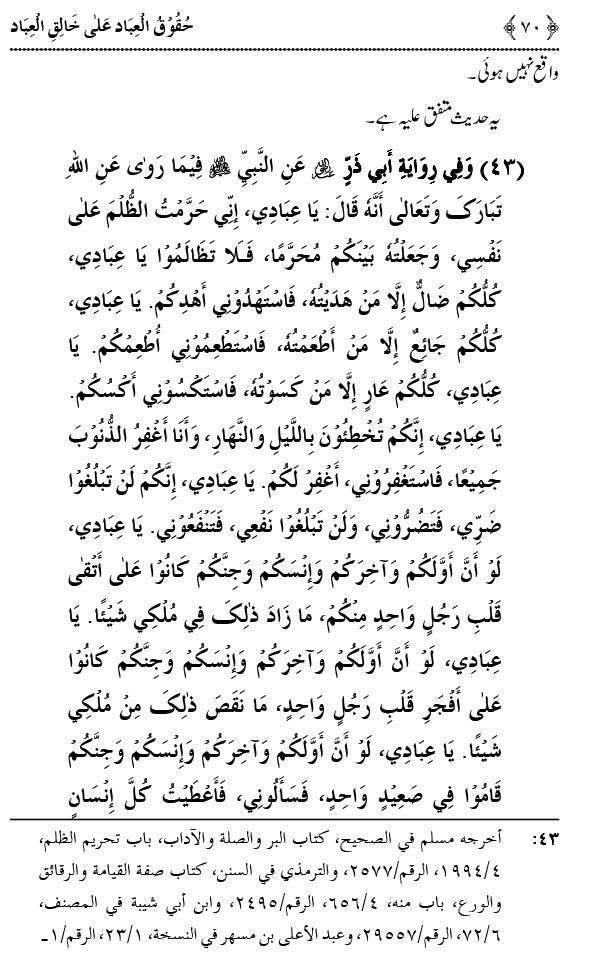 ﴿٧٠﴾ حُقُوۡقُ الۡعِبَادِ عَلٰی خَالِقِ الۡعِبَادِ
واقع نہیں ہوئی۔
یہ حدیث متفق علیہ ہے۔
(٤٣) وَفِي رِوَايَةِ أَبِي ذَرٍّ ﷺ عَنِ النَّبِيِّ ﷺ فِيۡمَا رَوٰى عَنِ اللهِ
تَبَارَکَ وَتَعَالٰى أَنَّهٗ قَالَ: يَا عِبَادِي، إِنِّي حَرَّمۡتُ الظُّلۡمَ عَلٰى
نَفۡسِي، وَجَعَلۡتُهٗ بَيۡنَكُمۡ مُحَرَّمًا، فَـلَا تَظَالَمُوۡا يَا عِبَادِي،
كُلُّكُمۡ ضَالٌّ إِلَّا مَنۡ هَدَيۡتُهٗ، فَاسۡتَهۡدُوۡنِي أَهۡدِكُمۡ. يَا عِبَادِي،
كُلُّكُمۡ جَائِعٌ إِلَّا مَنۡ أَطۡعَمۡتُهٗ، فَاسۡتَطۡعِمُوۡنِي أُطۡعِمۡكُمۡ. يَا
عِبَادِي، كُلُّكُمۡ عَارٍ إِلَّا مَنۡ كَسَوۡتُهٗ، فَاسۡتَكۡسُوۡنِي أَكۡسُكُمۡ.
يَا عِبَادِي، إِنَّكُمۡ تُخۡطِئُوۡنَ بِاللَّيۡلِ وَالنَّهَارِ، وَأَنَا أَغۡفِرُ الذُّنُوۡبَ
جَمِيۡعًا، فَاسۡتَغۡفِرُوۡنِي، أَغۡفِرۡ لَكُمۡ. يَا عِبَادِي، إِنَّكُمۡ لَنۡ تَبۡلُغُوۡا
ضَرِّي، فَتَضُرُّوۡنِي، وَلَنۡ تَبۡلُغُوۡا نَفۡعِي، فَتَنۡفَعُوۡنِي. يَا عِبَادِي،
لَوۡ أَنَّ أَوَّلَكُمۡ وَآخِرَكُمۡ وَإِنۡسَكُمۡ وَجِنَّكُمۡ كَانُوۡا عَلٰى أَتۡقٰى
قَلۡبِ رَجُلٍ وَاحِدٍ مِنۡكُمۡ، مَا زَادَ ذٰلِکَ فِي مُلۡكِي شَيۡئًا. يَا
عِبَادِي، لَوۡ أَنَّ أَوَّلَكُمۡ وَآخِرَكُمۡ وَإِنۡسَكُمۡ وَجِنَّكُمۡ كَانُوۡا
عَلٰى أَفۡجَرِ قَلۡبِ رَجُلٍ وَاحِدٍ، مَا نَقَصَ ذٰلِکَ مِنۡ مُلۡكِي
شَيۡئًا. يَا عِبَادِي، لَوۡ أَنَّ أَوَّلَكُمۡ وَآخِرَكُمۡ وَإِنۡسَكُمۡ وَجِنَّكُمۡ
قَامُوۡا فِي صَعِيۡدٍ وَاحِدٍ، فَسَأَلُوۡنِي، فَأَعۡطَيۡتُ كُلَّ إِنۡسَانٍ
٤٣: أخرجه مسلم في الصحيح، كتاب البر والصلة والآداب، باب تحريم الظلم،
٤/١٩٩٤، الرقم/٢٥٧٧، والترمذي في السنن، كتاب صفة القيامة والرقائق
والورع، باب منه، ٤/٦٥٦، الرقم/٢٤٩٥، وابن أبي شيبة في المصنف،
٦/٧٢، الرقم/٢٩٥٥٧، وعبد الأعلى بن مسهر في النسخة، ١/٢٣، الرقم/١۔